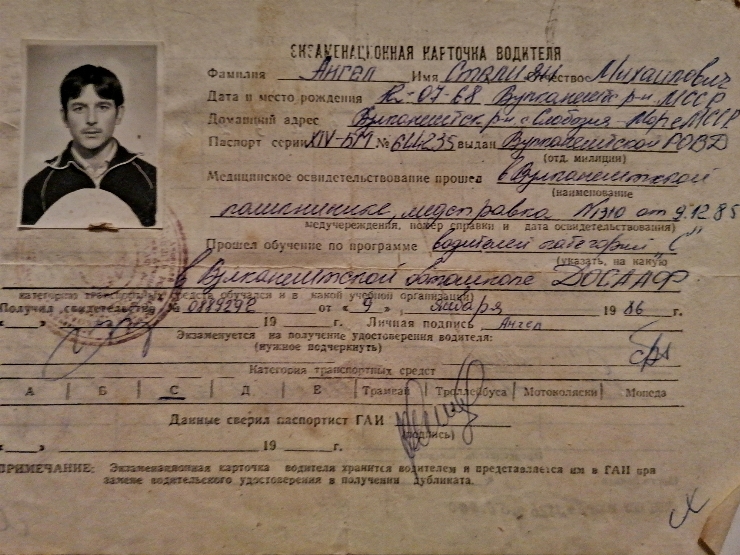 ЭКЗАМЕНАЦИОННАЯ КАРТОЧКА ВОДИТЕЛЯ
Фамилия Ангел Имя Стелиян Отчество Михаилович
Дата и место рождения 12-07-68 Вулканештск р-н МССР
Домашний адрес Вулканештск р-н с Слободзея-Маре МССР
Паспорт серии XIV-БМ № 644235 выдан Вулканештской РОВД
(отд. милиции)
Медицинское освидетельствование прошел в Вулканештской
(наименование
поликлинике, медсправка от 9.12.85
медучереждения, номер справки и дата освидетельствования)
Прошел обучение по программе водителей категории "С"
(указать, на какую
в Вулканештской автошколе ДОСААФ
категорию транспортных средств обучался и в какой учебной организации)
Получил свидетельство № от « 9 » января 19 86 г.
« » 19 г. Личная подпись Ангел
Экзаменуется на получение удостоверения водителя:
(нужное подчеркнуть)
Категория транспортных средст
А | Б | С | Д | Е | Трамвая | Троллейбуса | Мотоколяски | Мопеда
Данные сверил паспортист ГАИ
(подпись)
« » 19 г.
ПРИМЕЧАНИЕ: Экзаменационная карточка водителя хранится водителем и представляется им в ГАИ при
замене водительского удостоверения в получении дубликата.